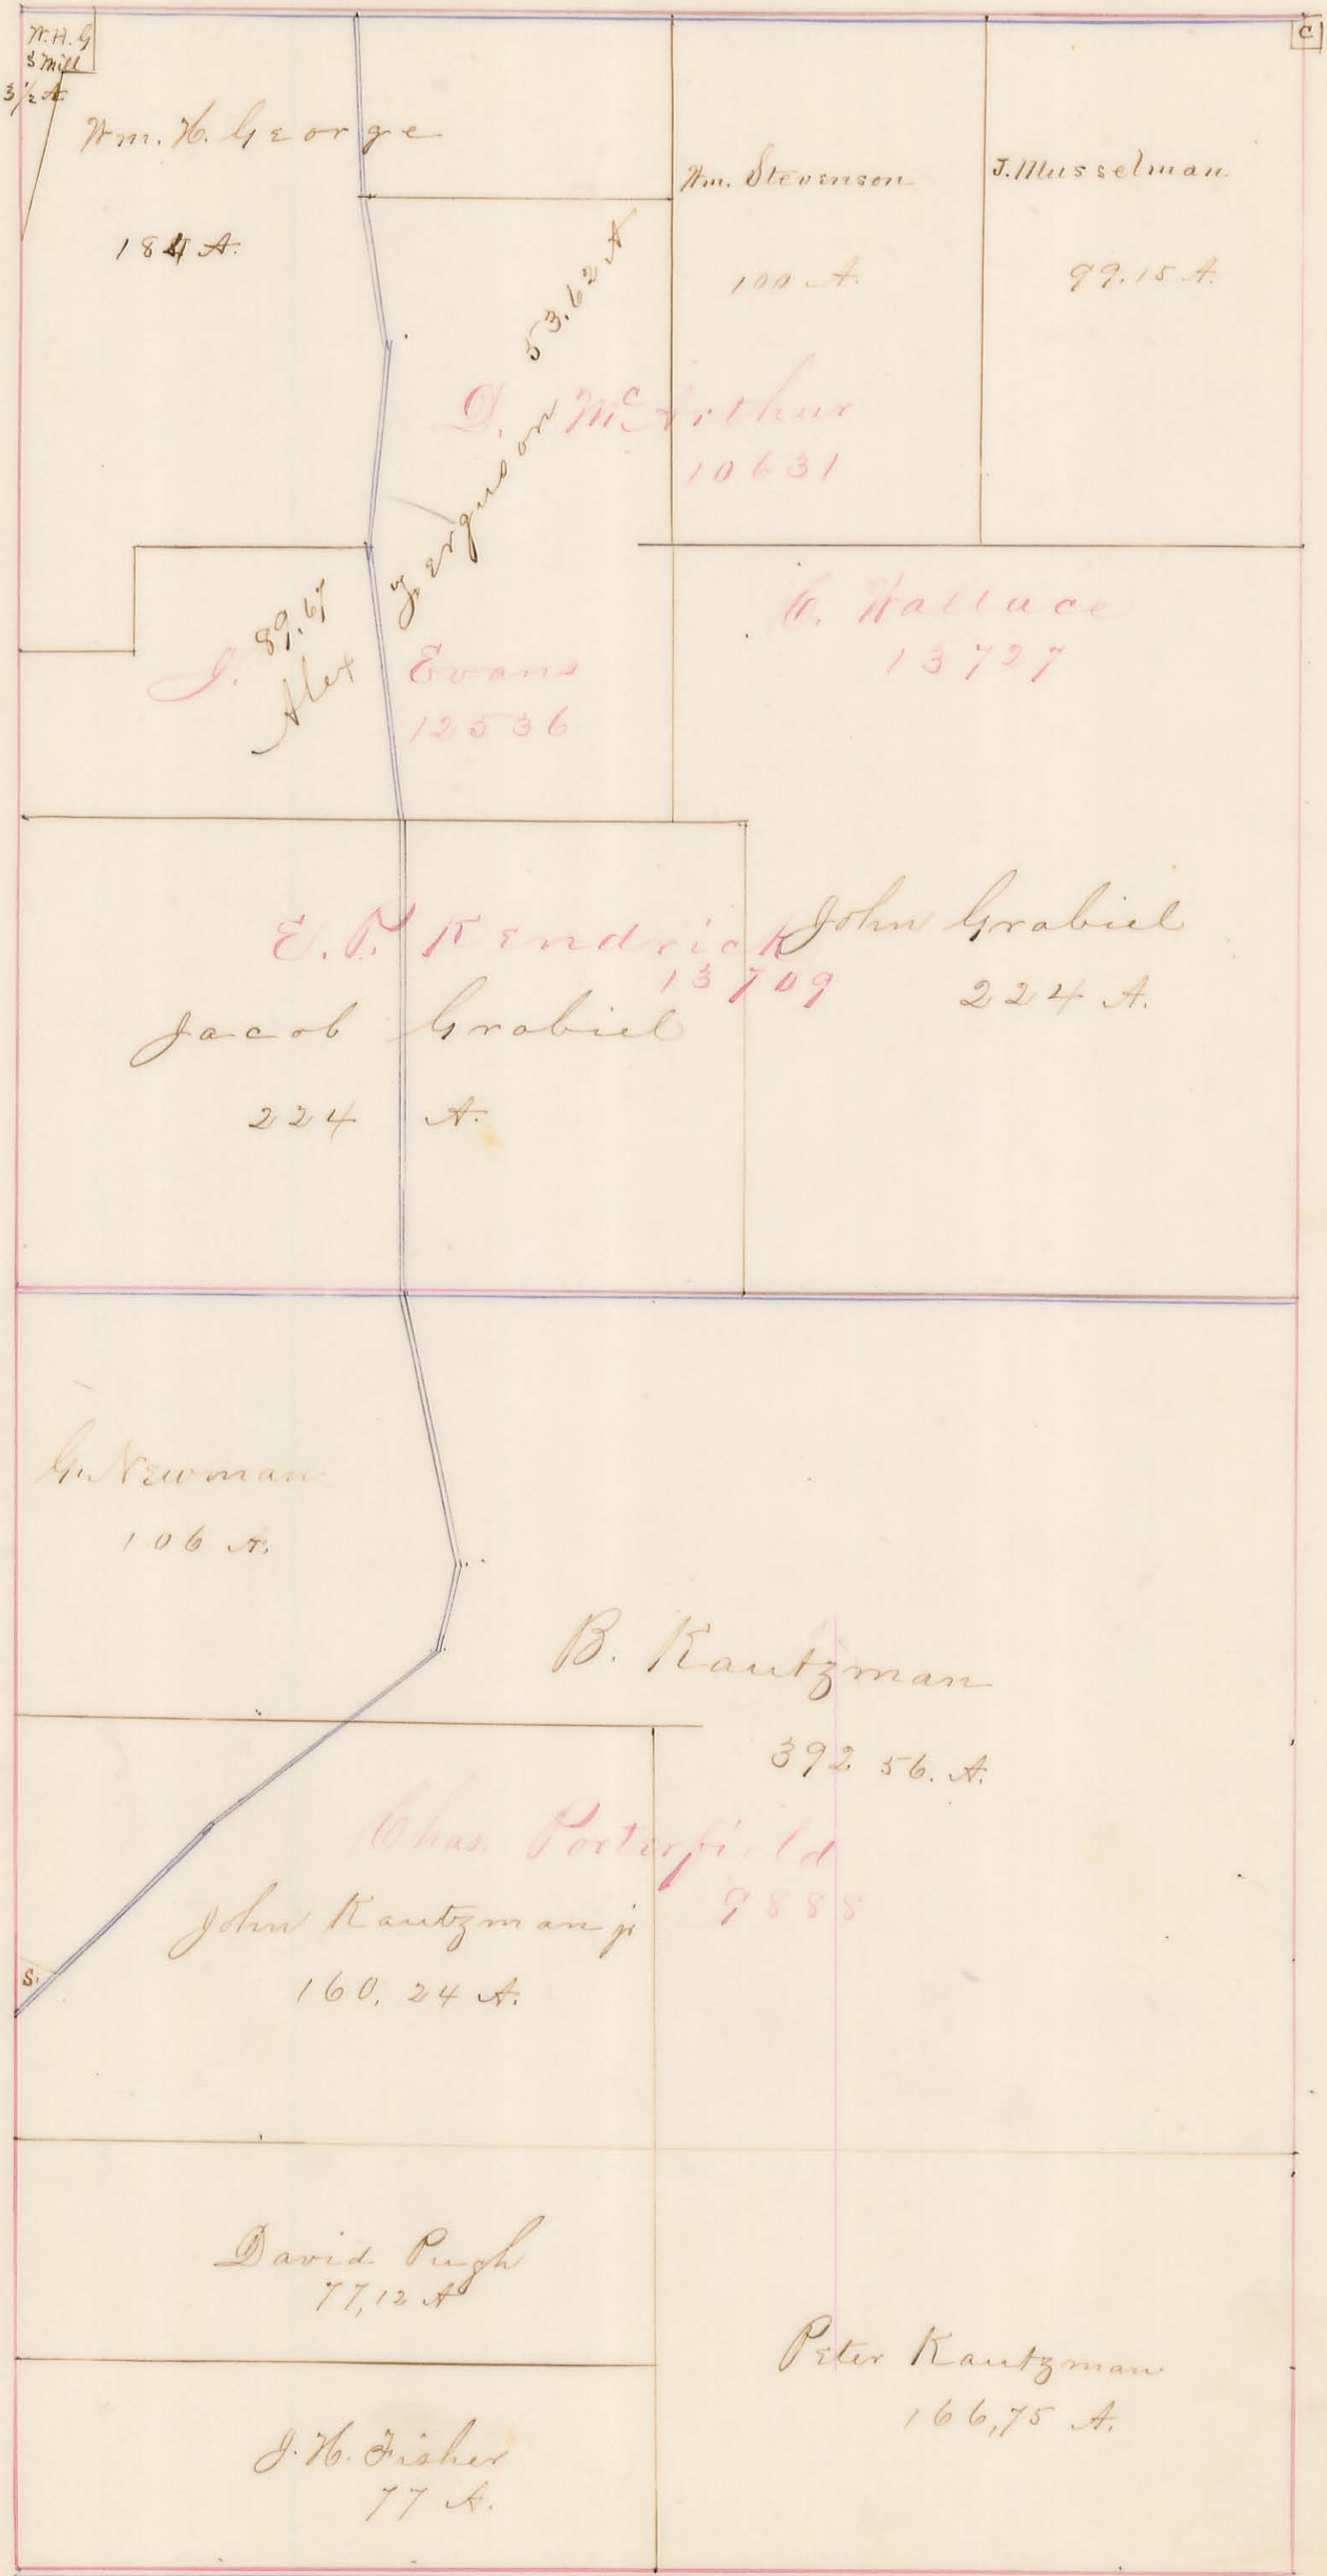 W. H. G
S Mill
3 1/2 A.
C
Wm. H. George
184 A.
Wm. Stevenson
100 A.
J. Musselman
99.15 A.
D. McArthur
10631
Alex Ferguson 53.62 A
89.67
C. Wallace
13727
J. Evans
12536
E. P. Kendrick
13709
John Grabiel
224 A.
Jacob Grabiel
224 A.
G. Newman
106 A.
B. Kautzman
392 56. A.
Chas. Porterfield
9888
John Kautzman jr
160. 24 A.
S.
David Pugh
77,12 A
Peter Kautzman
166,75 A.
J. H. Fisher
77 A.